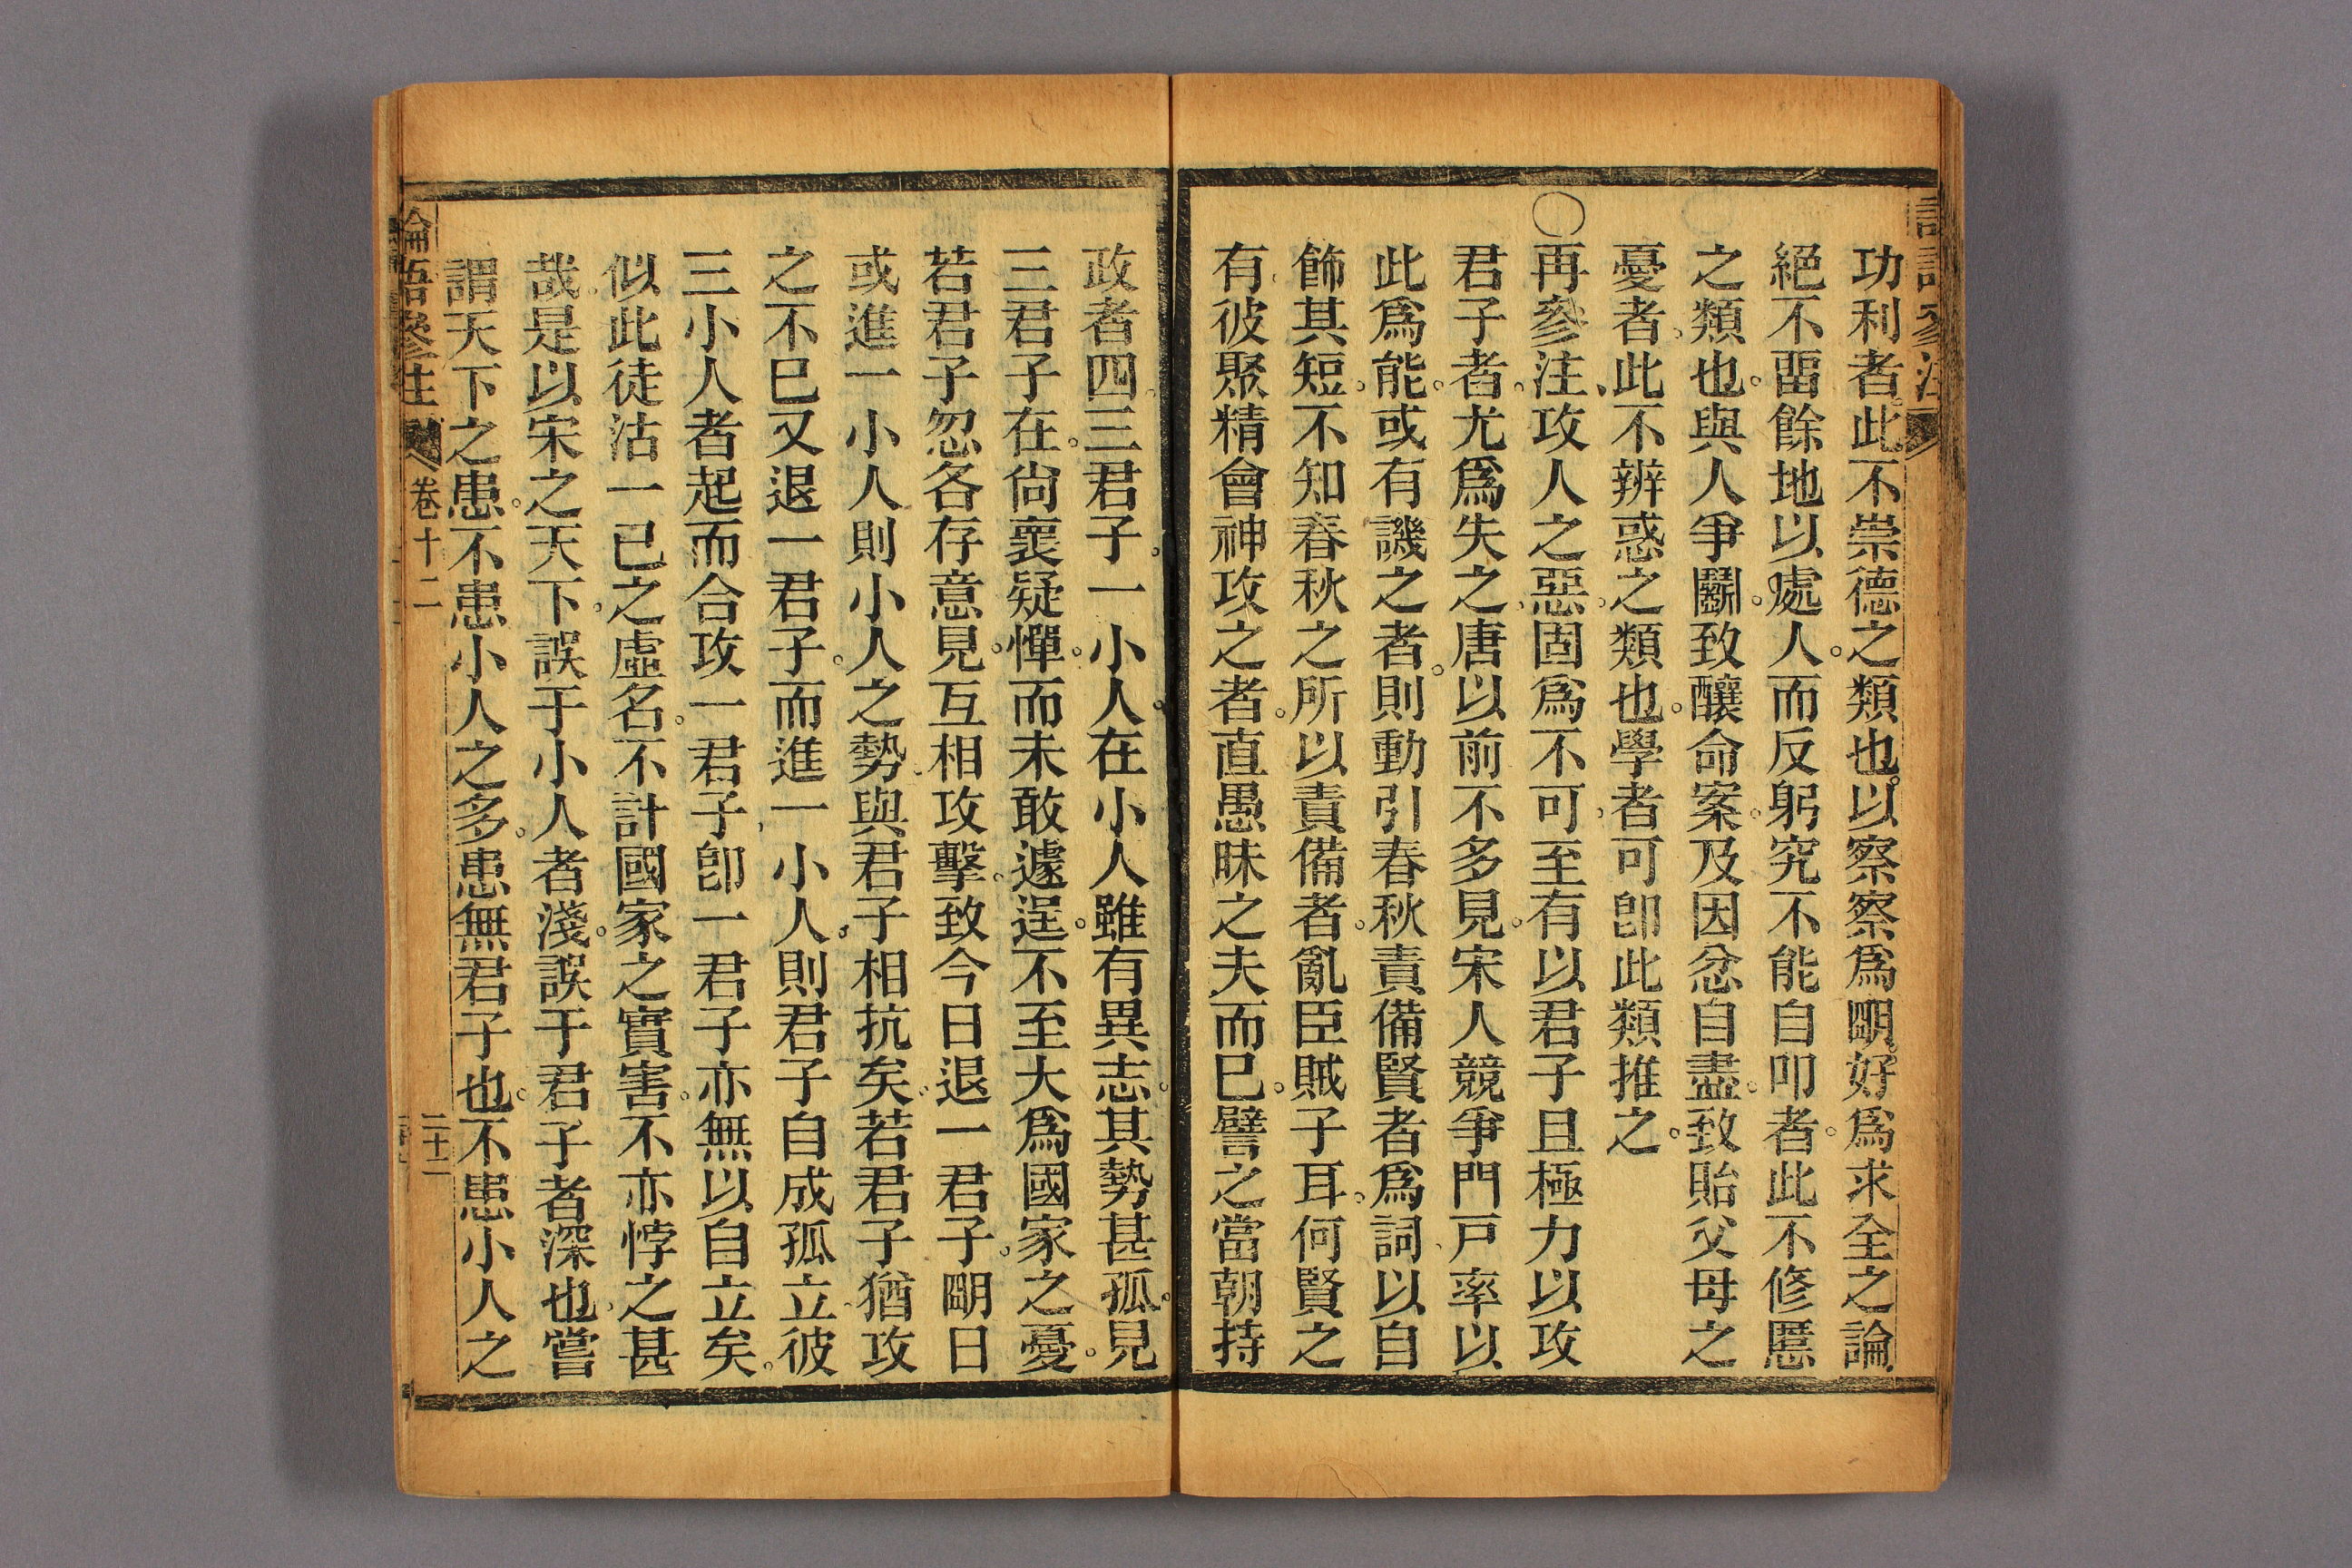 功利者此不崇德之類也以察察爲明好爲求全之論
絕不畱餘地以處人而反躬究不能自叩者此不修慝
之類也與人爭鬭致釀命案及因忿自盡致貽父母之
憂者此不辨惑之類也學者可卽此類推之
〇再參注攻人之惡固爲不可至有以君子且極力以攻
君子者尤爲失之唐以前不多見宋人競爭門戸率以
此爲能或有譏之者則動引春秋責備賢者爲詞以自
飾其短不知春秋之所以責備者亂臣賊子耳何賢之
有彼聚精會神攻之者直愚昧之夫而已譬之當朝持
政者四三君子一小人在小人雖有異志其勢甚孤見
三君子在尙襄疑憚而未敢遽逞不至大爲國家之憂
若君子忽各存意見互相攻擊致今日退一君子明日
或進一小人則小人之勢與君子相抗矣若君子猶攻
之不已又退一君子而進一小人則君子自成孤立彼
三小人者起而合攻一君子卽一君子亦無以自立矣
似此徒沽一己之虛名不計國家之實害不亦悖之甚
哉是以宋之天下誤于小人者淺誤于君子者深也嘗
謂天下之患不患小人之多患無君子也不患小人之
論語參注
卷十二
二十二